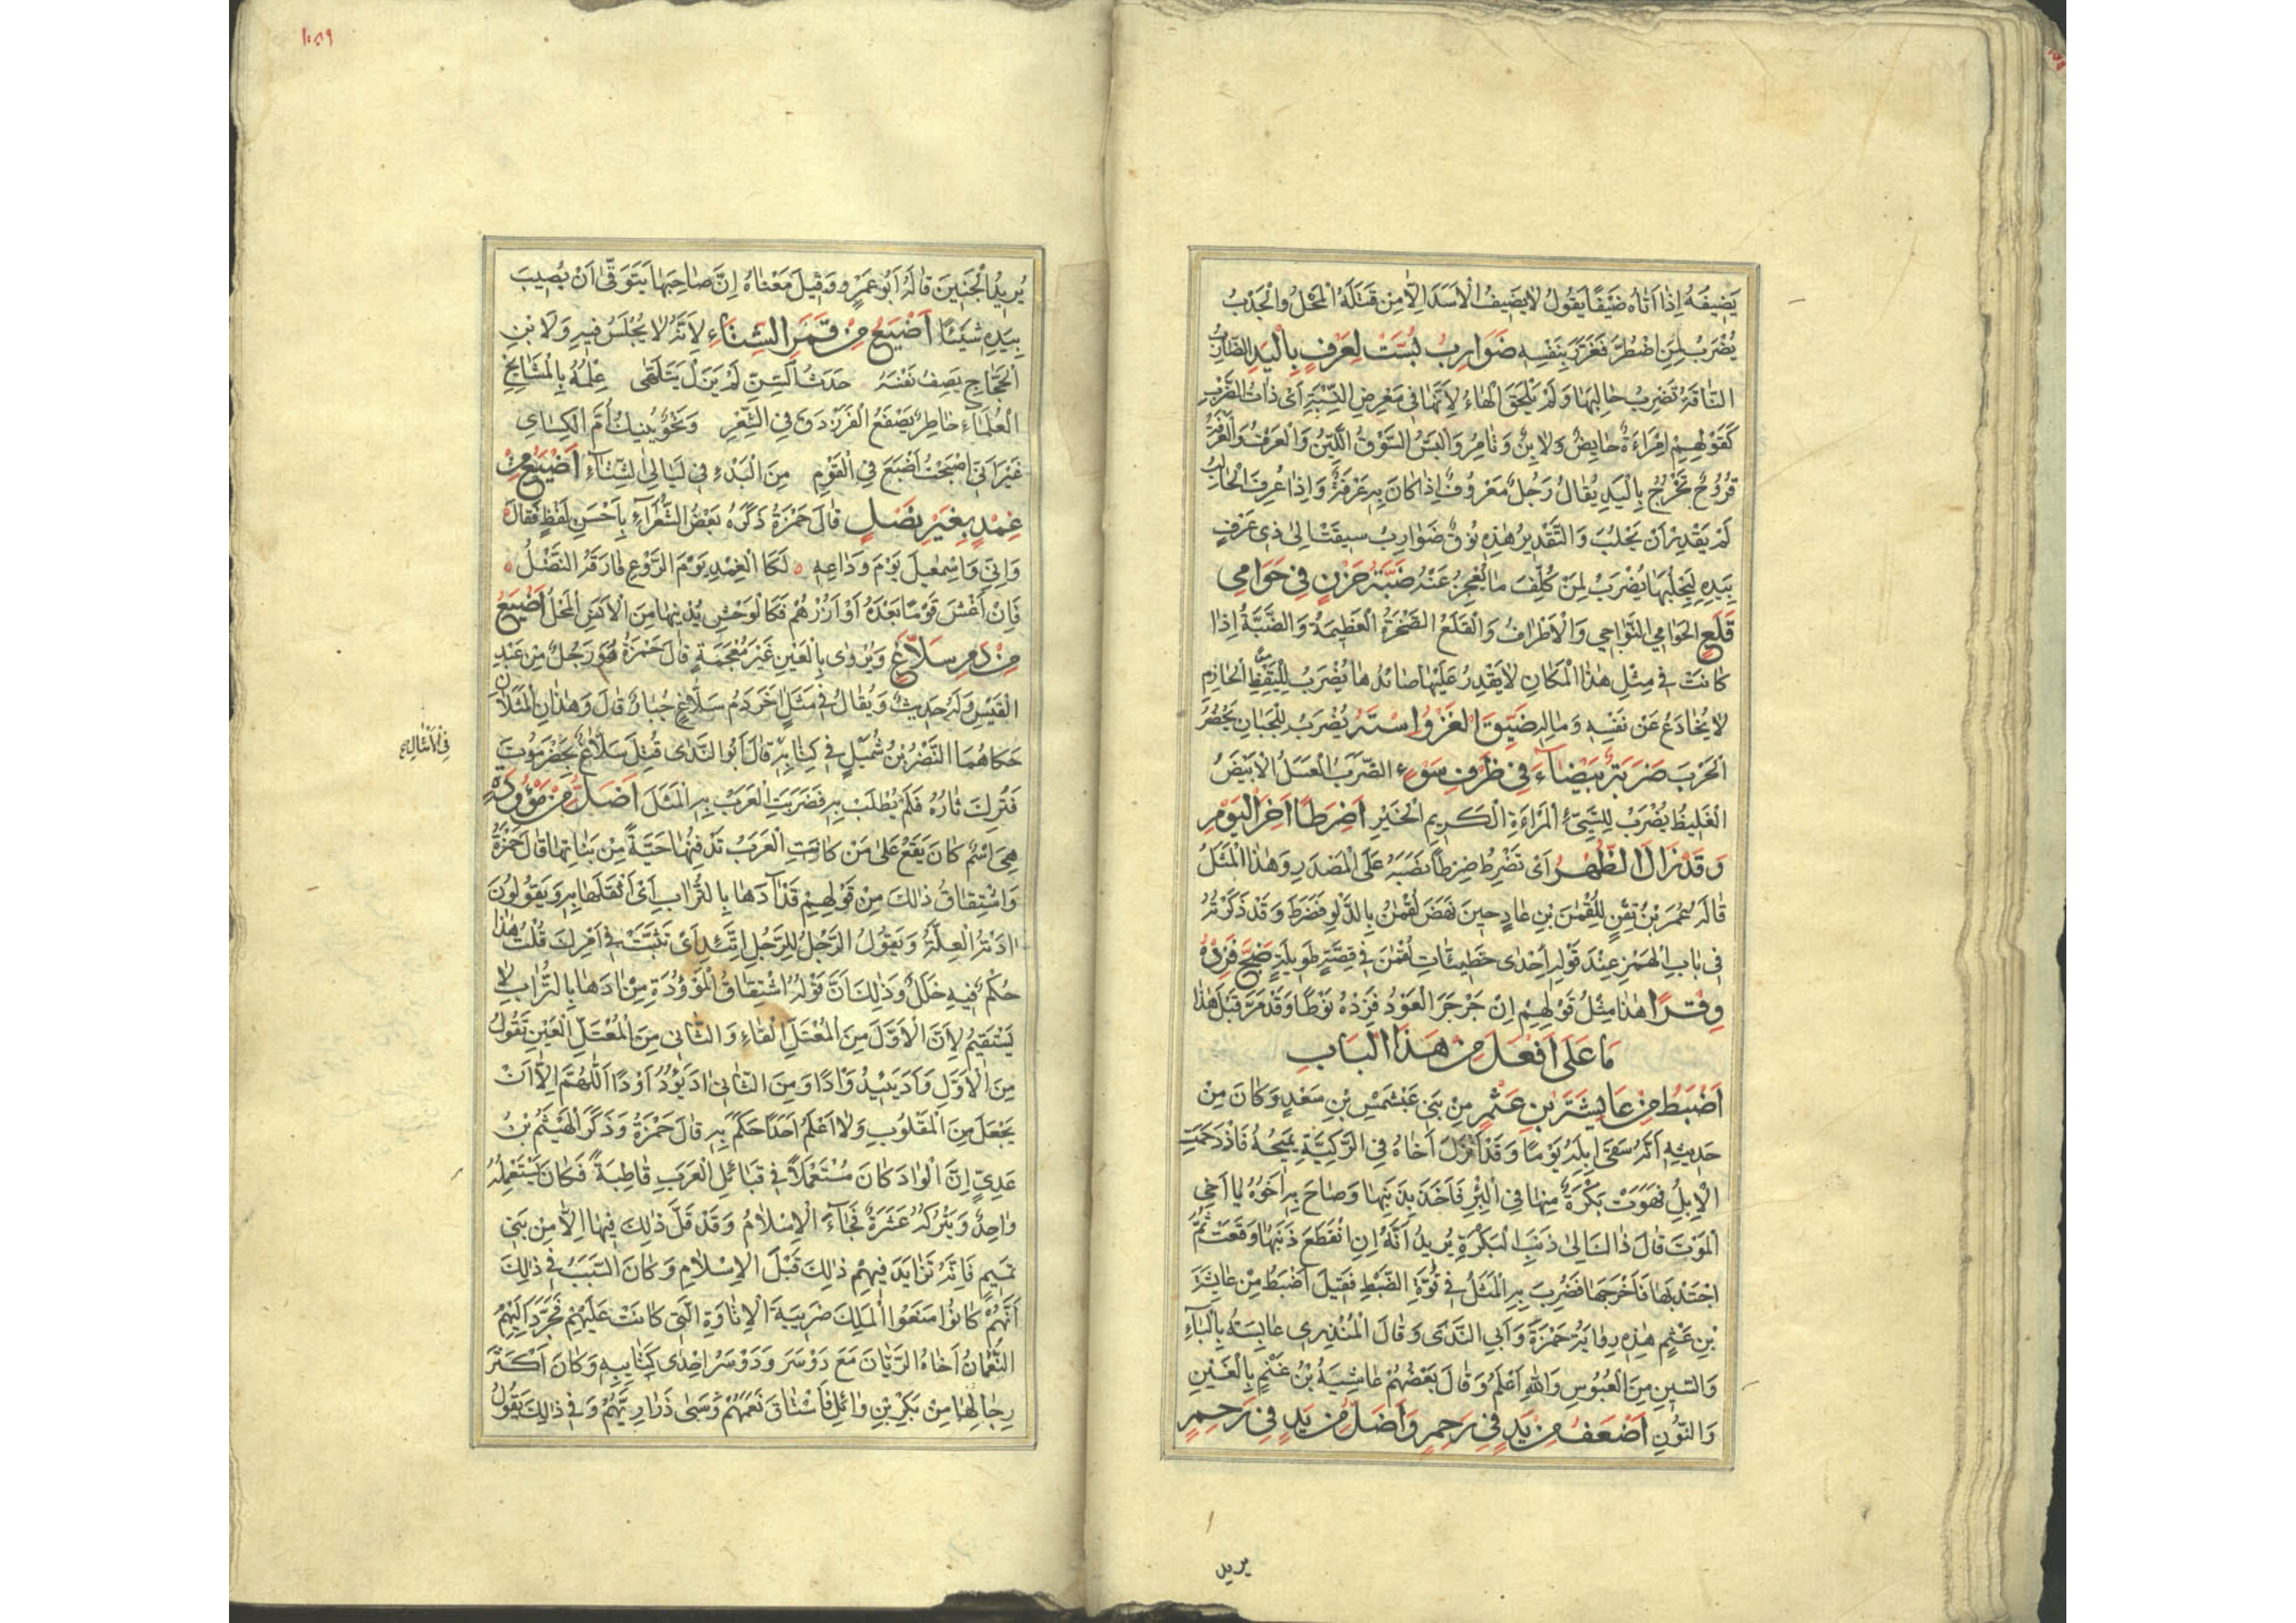 يَضِيفَهُ إِذَا أَتَاهُ ضَيْفًا يَقُولُ لَا يَضِيفُ الْأَسَدَ إِلَّا مِن قَتَلَهُ الْمَحْلُ وَالْجَدْبُ
يُضْرَبُ لِمَنِ اضْطُرَّ فَغَرَّرَ بِنَفْسِهِ ضَوَارِبُ بُسَّتْ لِعَرْفٍ بِالْيَدِ الضَّارِبُ
النَّاقَةُ تَضْرِبُ حَالِبَهَا وَلَمْ يَلْحَقِ الْهَاءُ لِأَنَّهَا فِي مَعْرِضِ النِّسْبَةِ أَيْ ذَاتُ الضَّرْبِ
كَقَوْلِهِمْ اِمْرَاءَةٌ حَايِضٌ وَلَابِنٌ وَتَامِرٌ وَالْبَسُّ السَّوْقُ اللَّيِّنُ وَالْعَرْفُ وَالْعَرْفَةُ
قُرُوحٌ تَخْرُجُ بِالْيَدِ يُقَالُ رَجُلٌ مَعْرُوفٌ إِذَا كَانَ بِهِ عَرْفَةٌ وَإِذَا عُرِفَ الْحَالِبُ
لَمْ يَقْدِرْ أَنْ يَحْلُبَ وَالتَّقْدِيرُ هٰذِهِ نُوقٌ ضَوَارِبُ سِيقَتْ إِلَى ذِي عَرْفٍ
بِيَدِهِ لِيَحْلُبَهَا يُضْرَبُ لِمَنْ كُلِّفَ مَا يُعْجِزُ عَنْهُ ضَبَّةُ حَزْنٍ فِي حَوَامِي
قَلَعٍ الْحَوَامِي النَّوَاحِي وَالْأَطْرَافُ وَالْقَلَعُ الصَّخْرَةُ الْعَظِيمَةُ وَالضَّبَّةُ إِذَا
كَانَتْ فِي مِثْلِ هٰذَا الْمَكَانِ لَا يَقْدِرُ عَلَيْهَا صَائِدُهَا يُضْرَبُ لِلْيَقِظِ الْحَازِمِ
لَا يُخَادَعُ عَنْ نَفْسِهِ وَمَالِهِ ضَيِّقَ الْغَزْوِ اسْتَهُ يُضْرَبُ لِلْجَبَانِ يَحْضُرُ
الْحَرْبَ ضَرَبَةٌ بَيْضَاءُ فِي ظَرْفِ سَوْءٍ الضَّرَبُ الْعَسَلُ الْأَبْيَضُ
الْغَلِيظُ يُضْرَبُ لِلسَّيِّئِ الْمَرْاءَةِ الْكَرِيمِ الْخَيْرِ أَضَرِطًا آخِرَ الْيَوْمِ
وَقَدْ زَالَ الظُّهْرُ أَيْ تَضْرِطُ ضَرِطًا نَصَبَهُ عَلَى الْمَصْدَرِ وَهٰذَا الْمَثَلُ
قَالَهُ عُمَرُ بْنُ تِقْنٍ لِلُقْمٰنَ بْنِ عَادٍ حِينَ نَهَضَ لُقْمٰنُ بِالدَّلْوِ فَضَرَطَ وَقَدْ ذَكَرْتُهُ
فِي بَابِ الْهَمْزِ عِنْدَ قَوْلِهِ إِحْدَى حَظِيَّاتِ لُقْمٰنَ فِي قِصَّةٍ طَوِيلَةٍ ضَجَّ فَزِدْهُ
وِقْرًا هٰذَا مِثْلُ قَوْلِهِمْ إِنْ جَرْجَرَ الْعَوْدُ فَزِدْهُ نَوْطًا وَقَدْ مَرَّ قَبْلَ هٰذَا
مَا عَلَى أَفْعَلَ مِنْ هَذَا الْبَابِ
أَضْبَطُ مِنْ عَايِشَةَ بْنِ عَثْمٍ مِنْ بَنِي عَبْشَمْسِ بْنِ سَعْدٍ وَكَانَ مِنْ
حَدِيثِهِ أَنَّهُ سَقَى إِبِلَهُ يَوْمًا وَقَدْ أَنْزَلَ أَخَاهُ فِي الرَّكِيَّةِ يَمِيحُهُ فَازْدَحَمَتِ
الْإِبِلُ فَهَوَتْ بَكْرَةٌ مِنْهَا فِي الْبِئْرِ فَأَخَذَ بِذَنَبِهَا وَصَاحَ بِهِ أَخُوهُ يَا أَخِي
الْمَوْتَ قَالَ ذَاكَ إِلَى ذَنَبِ الْبَكْرَةِ يُرِيدُ أَنَّهُ إِنِ انْقَطَعَ ذَنَبُهَا وَقَعَتْ ثُمَّ
اجْتَذَبَهَا فَأَخْرَجَهَا فَضُرِبَ بِهِ الْمَثَلُ فِي قُوَّةِ الضَّبْطِ فَقِيلَ أَضْبَطُ مِنْ عَايِشَةَ
بْنِ عَثْمٍ هٰذِهِ رِوَايَةُ حَمْزَةَ وَأَبِي النَّدَى وَقَالَ الْمُنْذِرِي عَابِسَةُ بِالْبَاءِ
وَالسِّينِ مِنَ الْعُبُوسِ وَاللّٰهُ أَعْلَمُ وَقَالَ بَعْضُهُمْ عَاشِيَةُ بْنُ غَنْمٍ بِالْغَيْنِ
وَالنُّونِ أَضْعَفُ مِنْ يَدٍ فِي رَحِمٍ وَأَضَلُّ مِنْ يَدٍ فِي رَحِمٍ
يريد
١٠٥٩
يُرِيدُ الْجَنِينَ قَالَهُ أَبُو عَمْرٍو وَقِيلَ مَعْنَاهُ إِنَّ صَاحِبَهَا يَتَوَقَّى أَنْ يُصِيبَ
بِيَدِهِ شَيْئًا أَضْيَعُ مِنْ قَمَرِ الشِّتَاءِ لِأَنَّهُ لَا يُجْلَسُ فِيهِ وَلَابْنِ
الْحَجَّاجِ يَصِفُ نَفْسَهُ حَدَثُ السِّنِّ لَمْ يَزَلْ يَتَلَهَّى عِلْمُهُ بِالْمَشَايِخِ
الْعُلَمَاءِ خَاطِرٌ يَصْفَعُ الْفَرَزْدَقَ فِي الشِّعْرِ وَنَحْوٌ يَنِيكُ أُمَّ الْكِسَاي
غَيْرَ أَنِّي أَصْبَحْتُ أَضْيَعَ فِي الْقَوْمِ مِنَ الْبَدْرِ فِي لَيَالِي الشِّتَاءِ أَضْيَعُ مِنْ
غِمْدٍ بِغَيْرِ نَصْلٍ قَالَ حَمْزَةُ ذَكَرَهُ بَعْضُ الشُّعَرَاءِ بِأَحْسَنِ لَفْظٍ فَقَالَ
وَإِنِّي وَإِسْمٰعِيلَ يَوْمَ وَدَاعِهِ لَكَا الْغِمْدِ يَوْمَ الرَّوْعِ فَارَقَهُ النَّصْلُ
فَإِنْ أَغْشَ قَوْمًا بَعْدَهُ أَوْ أَزُرْهُمْ فَكَالْوَحْشِ يُدْنِيهَا مِنَ الْأَنَسِ الْمَحْلُ أَضْيَعُ
مِنْ دَمِ سَلَّاغٍ وَيُرْوٰى بِالْعَيْنِ غَيْرَ مُعْجَمَةٍ قَالَ حَمْزَةُ هُوَ رَجُلٌ مِنْ عَبْدِ
الْقَيْسِ وَلَهُ حَدِيثٌ وَيُقَالُ فِي مَثَلٍ آخَرَ دَمُ سَلَّاغٍ جُبَارٌ قَالَ وَهٰذَانِ الْمَثَلَانِ
حَكَاهُمَا النَّضْرُ بْنُ شُمَيْلٍ فِي كِتَابِهِ قَالَ أَبُو النَّدٰى قُتِلَ سَلَّاغٌ بِحَضْرَمَوْتَ
فِي الْأَمْثَالِ
فَتُرِكَ ثَارُهُ فَلَمْ يُطْلَبْ بِهِ فَضَرَبَتِ الْعَرَبُ بِهِ الْمَثَلَ أَضَلُّ مِنْ مَوْؤُدَةٍ
هِيَ اسْمٌ كَانَ يَقَعُ عَلٰى مَنْ كَانَتِ الْعَرَبُ تَدْفِنُهَا حَيَّةً مِنْ بَنَاتِهَا قَالَ حَمْزَةُ
وَاشْتِقَاقُ ذٰلِكَ مِنْ قَوْلِهِمْ قَدْ آدَهَا بِالتُّرَابِ أَيْ أَثْقَلَهَا بِهِ وَيَقُولُونَ
آدَتْهُ الْعِلَّةُ وَيَقُولُ الرَّجُلُ لِلرَّجُلِ اتَّئِدْ أَيْ تَثَبَّتْ فِي أَمْرِكَ قُلْتُ هٰذَا
حُكْمٌ فِيهِ خَلَلٌ وَذٰلِكَ أَنَّ قَوْلَهُ اشْتِقَاقُ الْمَوْؤُدَةِ مِنْ آدَهَا بِالتُّرَابِ لَا
يَسْتَقِيمُ لِأَنَّ الْأَوَّلَ مِنَ الْمُعْتَلِّ الْفَاءِ وَالثَّانِي مِنَ الْمُعْتَلِّ الْعَيْنِ تَقُولُ
مِنَ الْأَوَّلِ وَأَدَ يَئِيدُ وَأْدًا وَمِنَ الثَّانِي آدَ يَؤُودُ أَوْدًا اَللّٰهُمَّ إِلَّا أَنْ
يَجْعَلَ مِنَ الْمَقْلُوبِ وَلَا أَعْلَمُ أَحَدًا حَكَمَ بِهِ قَالَ حَمْزَةُ وَذَكَرَ الْهَيْثَمُ بْنُ
عَدِيٍّ إِنَّ الْوَادَ كَانَ مُسْتَعْمَلًا فِي قَبَائِلِ الْعَرَبِ قَاطِبَةً فَكَانَ يَسْتَعْمِلُهُ
وَاحِدٌ وَيَتْرُكُهُ عَشَرَةٌ فَجَاءَ الْإِسْلَامُ وَقَدْ قَلَّ ذٰلِكَ فِيهَا إِلَّا مِنْ بَنِي
تَمِيمٍ فَإِنَّهُ تَزَايَدَ فِيهِمْ ذٰلِكَ قَبْلَ الْإِسْلَامِ وَكَانَ السَّبَبُ فِي ذٰلِكَ
أَنَّهُمْ كَانُوا مَنَعُوا الْمَلِكَ ضَرِيبَةَ الْإِتَاوَةِ الَّتِي كَانَتْ عَلَيْهِمْ فَجَرَّدَ إِلَيْهِمُ
النُّعْمَانُ أَخَاهُ الرَّيَّانَ مَعَ دَوْسَرَ وَدَوْسَرُ إِحْدٰى كَتَايِبِهِ وَكَانَ أَكْثَرَ
رِجَالِهَا مِنْ بَكْرِ بْنِ وَائِلٍ فَاسْتَاقَ نَعَمَهُمْ وَسَبٰى ذَرَارِيَّهُمْ وَفِي ذٰلِكَ يَقُولُ